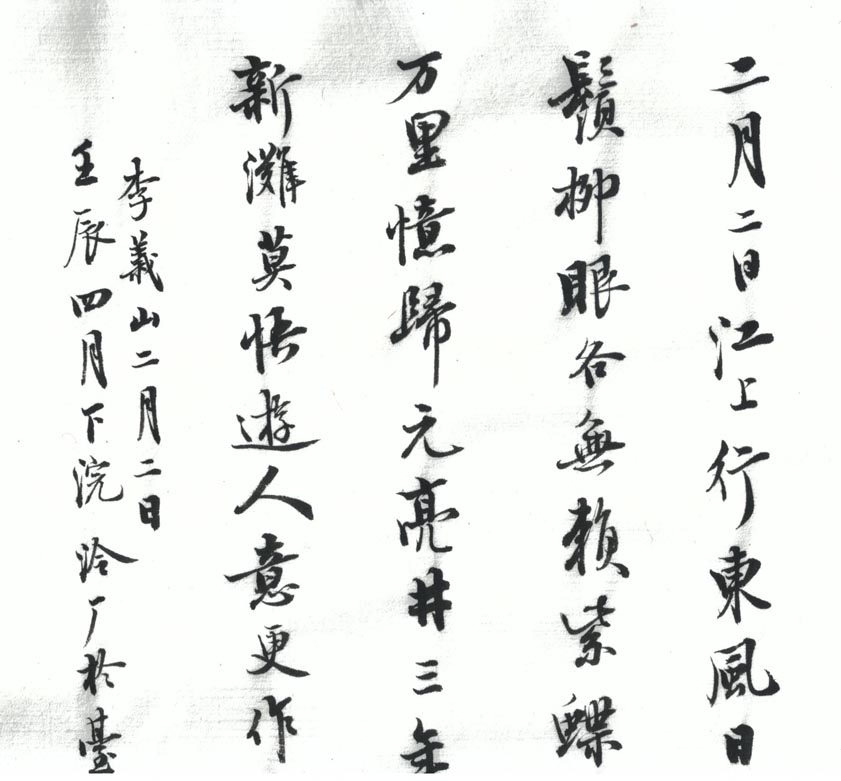 二月二日江上行東風日
鬚柳眼各無賴紫蝶
万里憶歸元亮井三年
新灘莫悟遊人意更作
李義山二月二日
壬辰四月下浣 泠厂於臺